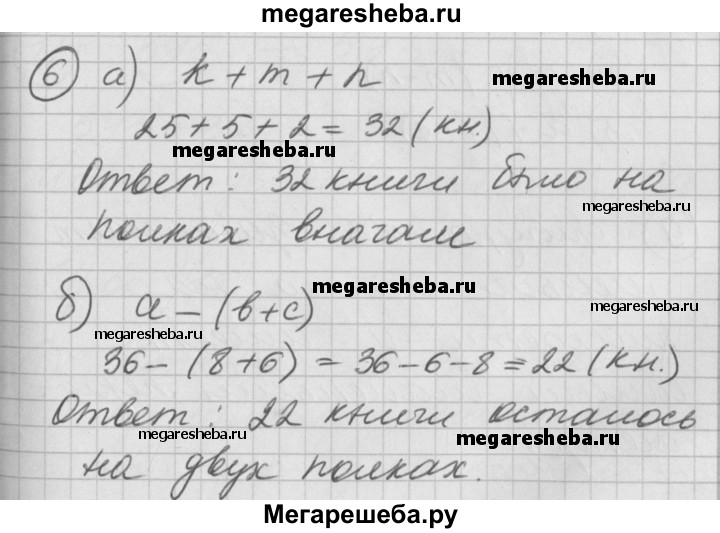 megaresheba.ru
6 а) k + m + n
megaresheba.ru
25 + 5 + 2 = 32 (кн.)
megaresheba.ru
Ответ: 32 книги было на
megaresheba.ru
полках вначале
б) a - (b + c)
megaresheba.ru
megaresheba.ru
megaresheba.ru
36 - (8 + 6) = 36 - 6 - 8 = 22 (кн.)
Ответ: 22 книги осталось
megaresheba.ru
megaresheba.ru
на двух полках.
Мегарешеба.ру